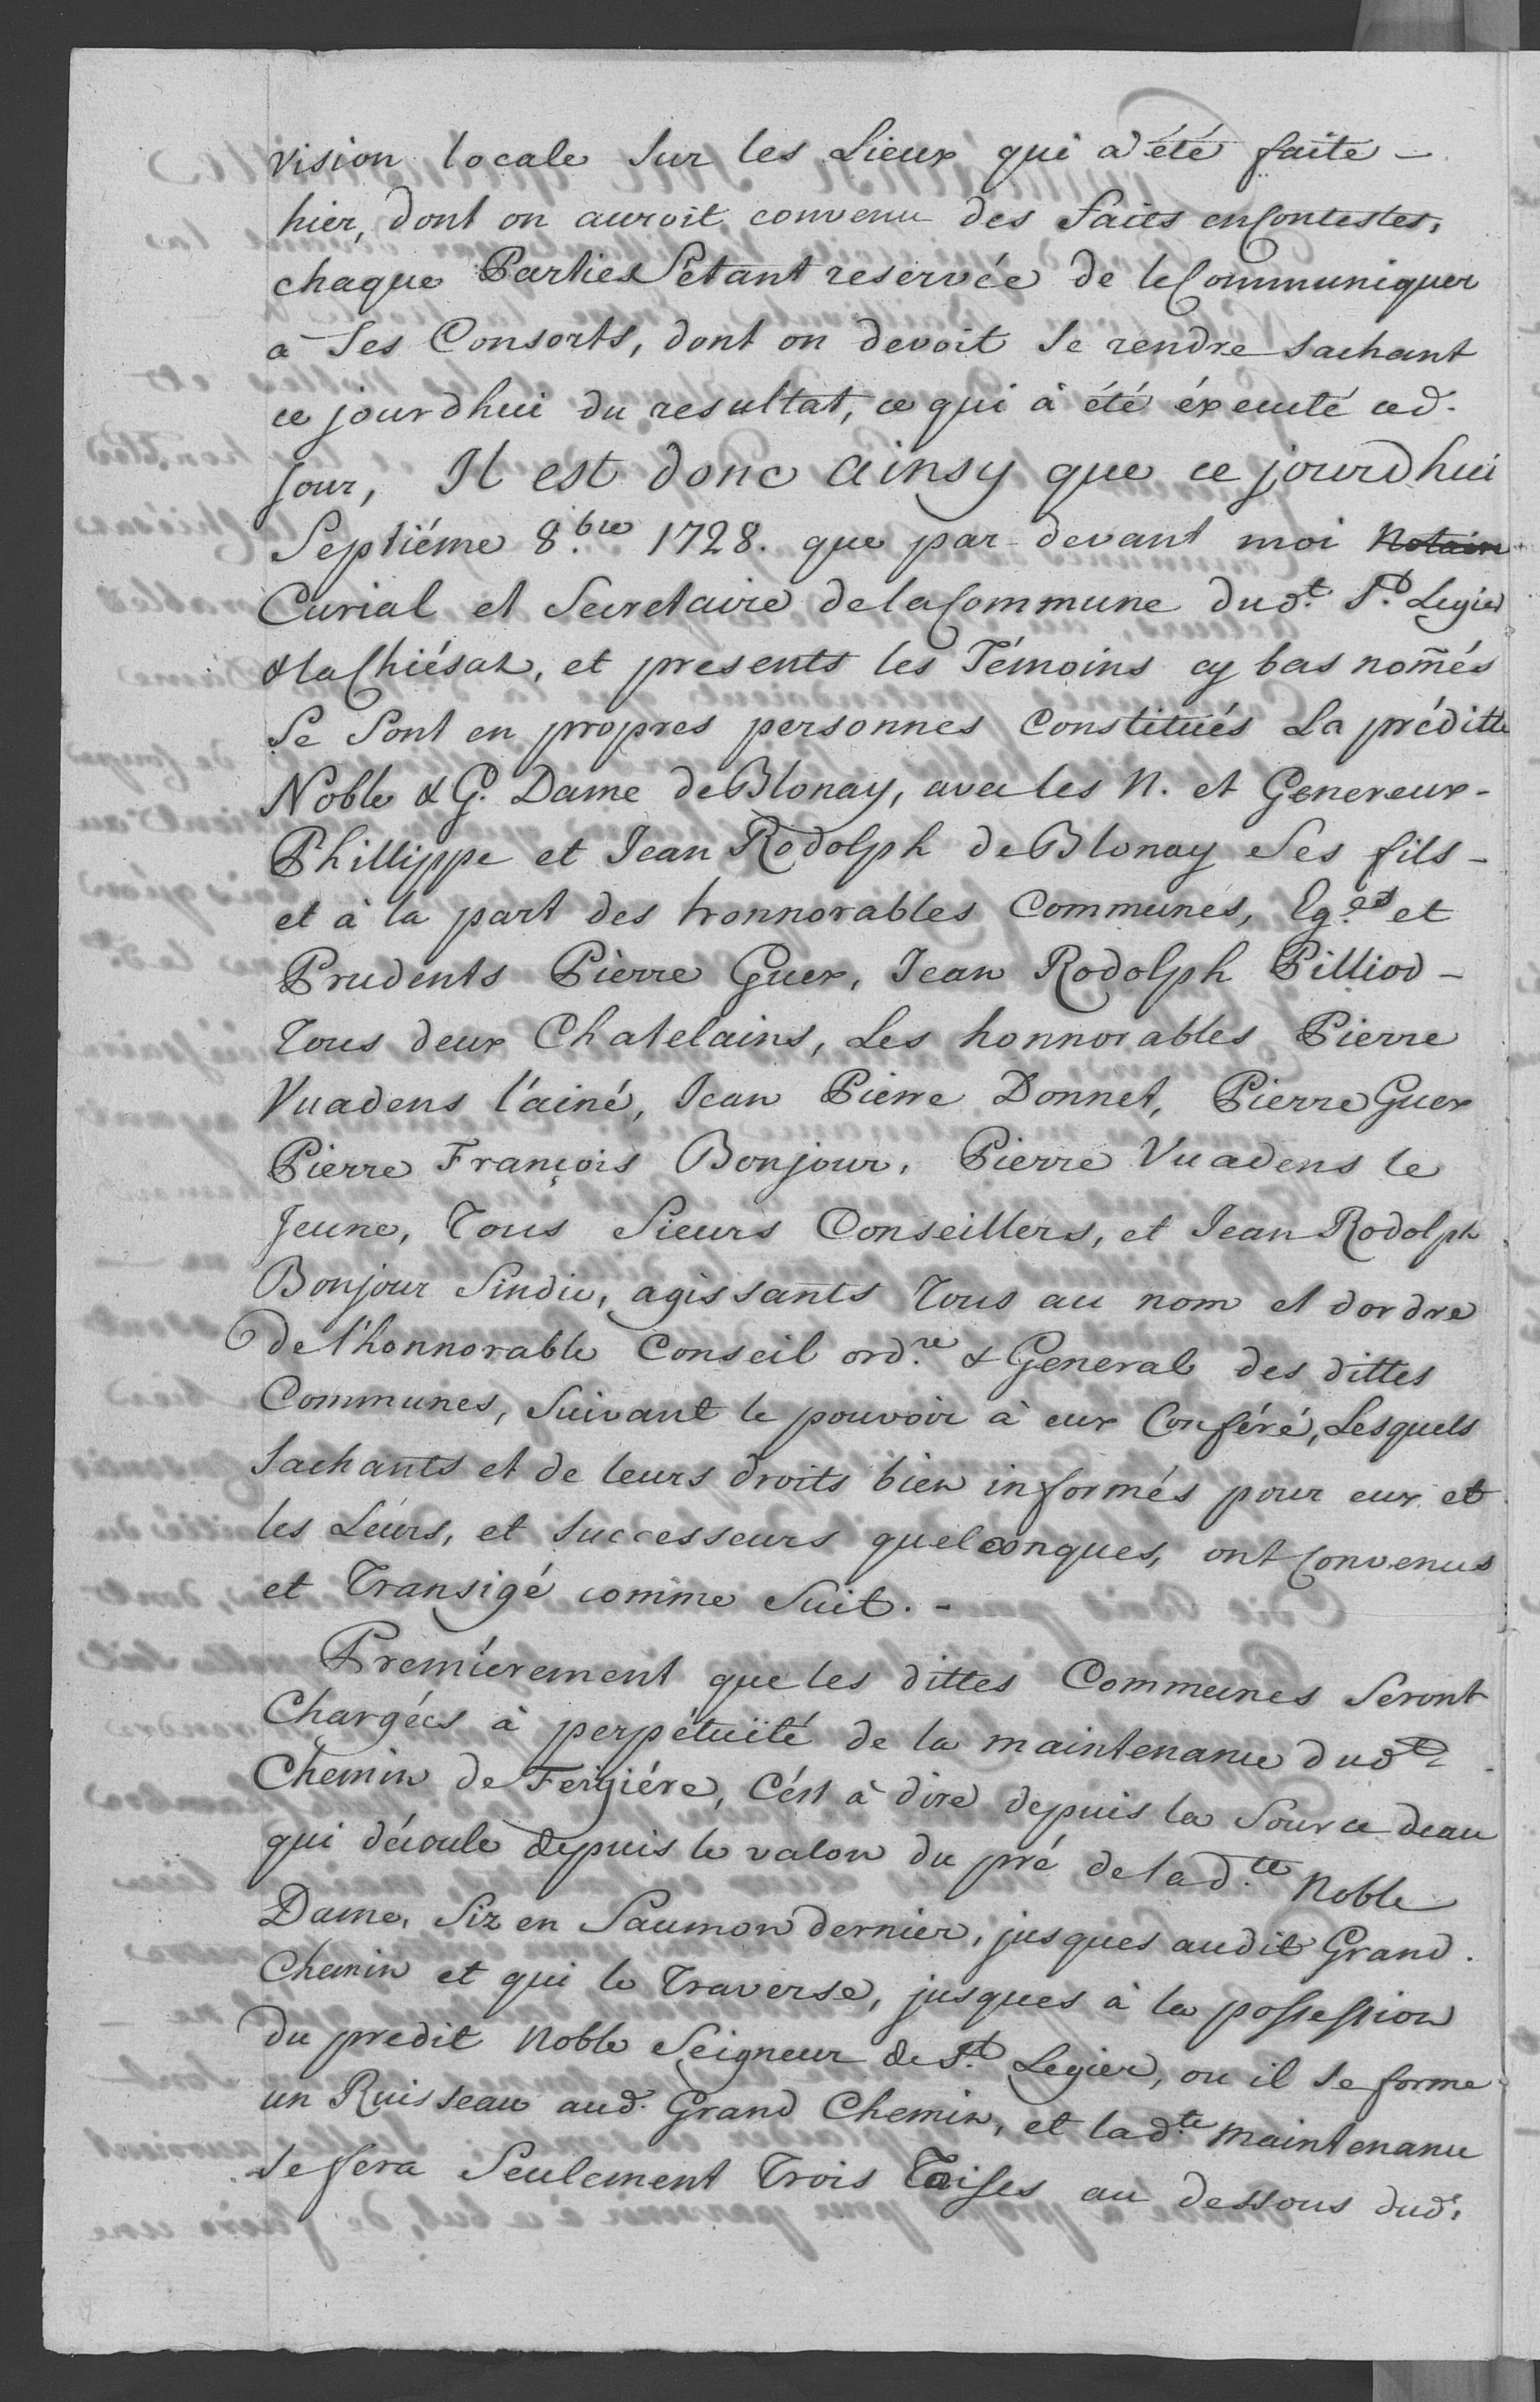 vision locale sur les Lieux qui a été faite -
hier, dont on auroit convenu des faits en Contestes,
chaque Parties S'etant reservée de le Communiquer
a Ses Consorts, dont on devoit Se rendre sachant
ce jourdhui du resultat, ce qui à été éxecuté ced.
jour, Il est donc ainsy que ce jourdhui
Septiéme 8.bre 1728. que par devant moi Notaire
Curial et Secretaire de la Commune dud.t S.t Legier
& la Chiésaz, et presents les Témoins cy bas nom̃és
Se Sont en propres personnes Constitués La préditte
Noble & G. Dame de Blonay, avec les N. et Genereux -
Phillippe et Jean Rodolph de Blonay Ses fils -
et à la part des honnorables Communes, Eg.es et
Prudents Pierre Guex, Jean Rodolph Pilliod -
Tous deux Chatelains, Les honnorables Pierre
Vuadens l'ainé, Jean Pierre Donnet, Pierre Guex
Pierre François Bonjour, Pierre Vuadens le
Jeune, Tous Sieurs Conseillers, et Jean Rodolph
Bonjour Sindic, agissants Tous au nom et dordre
de l'honnorable Conseil ord.re & General des dittes
Communes, Suivant le pouvoir à eux Conféré, Lesquels
Sachants et de leurs droits bien informés pour eux et
les Leurs, et Successeurs quelconques, ont Convenus
et Transigé comme Suit. -
Premiérement que les dittes Communes Seront
Chargées à perpétuité de la maintenance dud.t
Chemin de Fergiére, C'ést à dire depuis la Source deau
qui découle depuis le valon du pré de lad.te Noble
Dame, Siz en Saumon dernier, jusques audit Grand.
Chemin et qui le Traverse, jusques à la possession
du predit Noble Seigneur de S.t Legier, ou il se forme
un Ruisseau aud. Grand Chemin, et lad.te maintenance
Se fera Seulement Trois Toises au dessous dud.